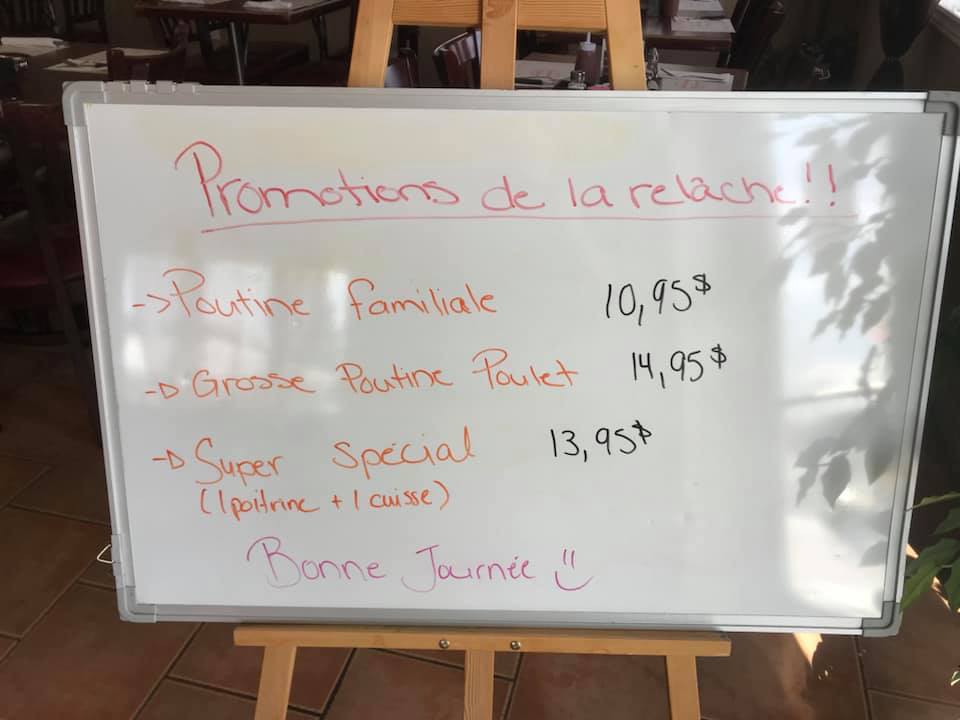 Promotions de la relâche!!
-> Poutine familiale 10,95$
-> Grosse Poutine Poulet 14,95$
-> Super spécial 13,95$
(1 poitrine + 1 cuisse)
Bonne Journée :)